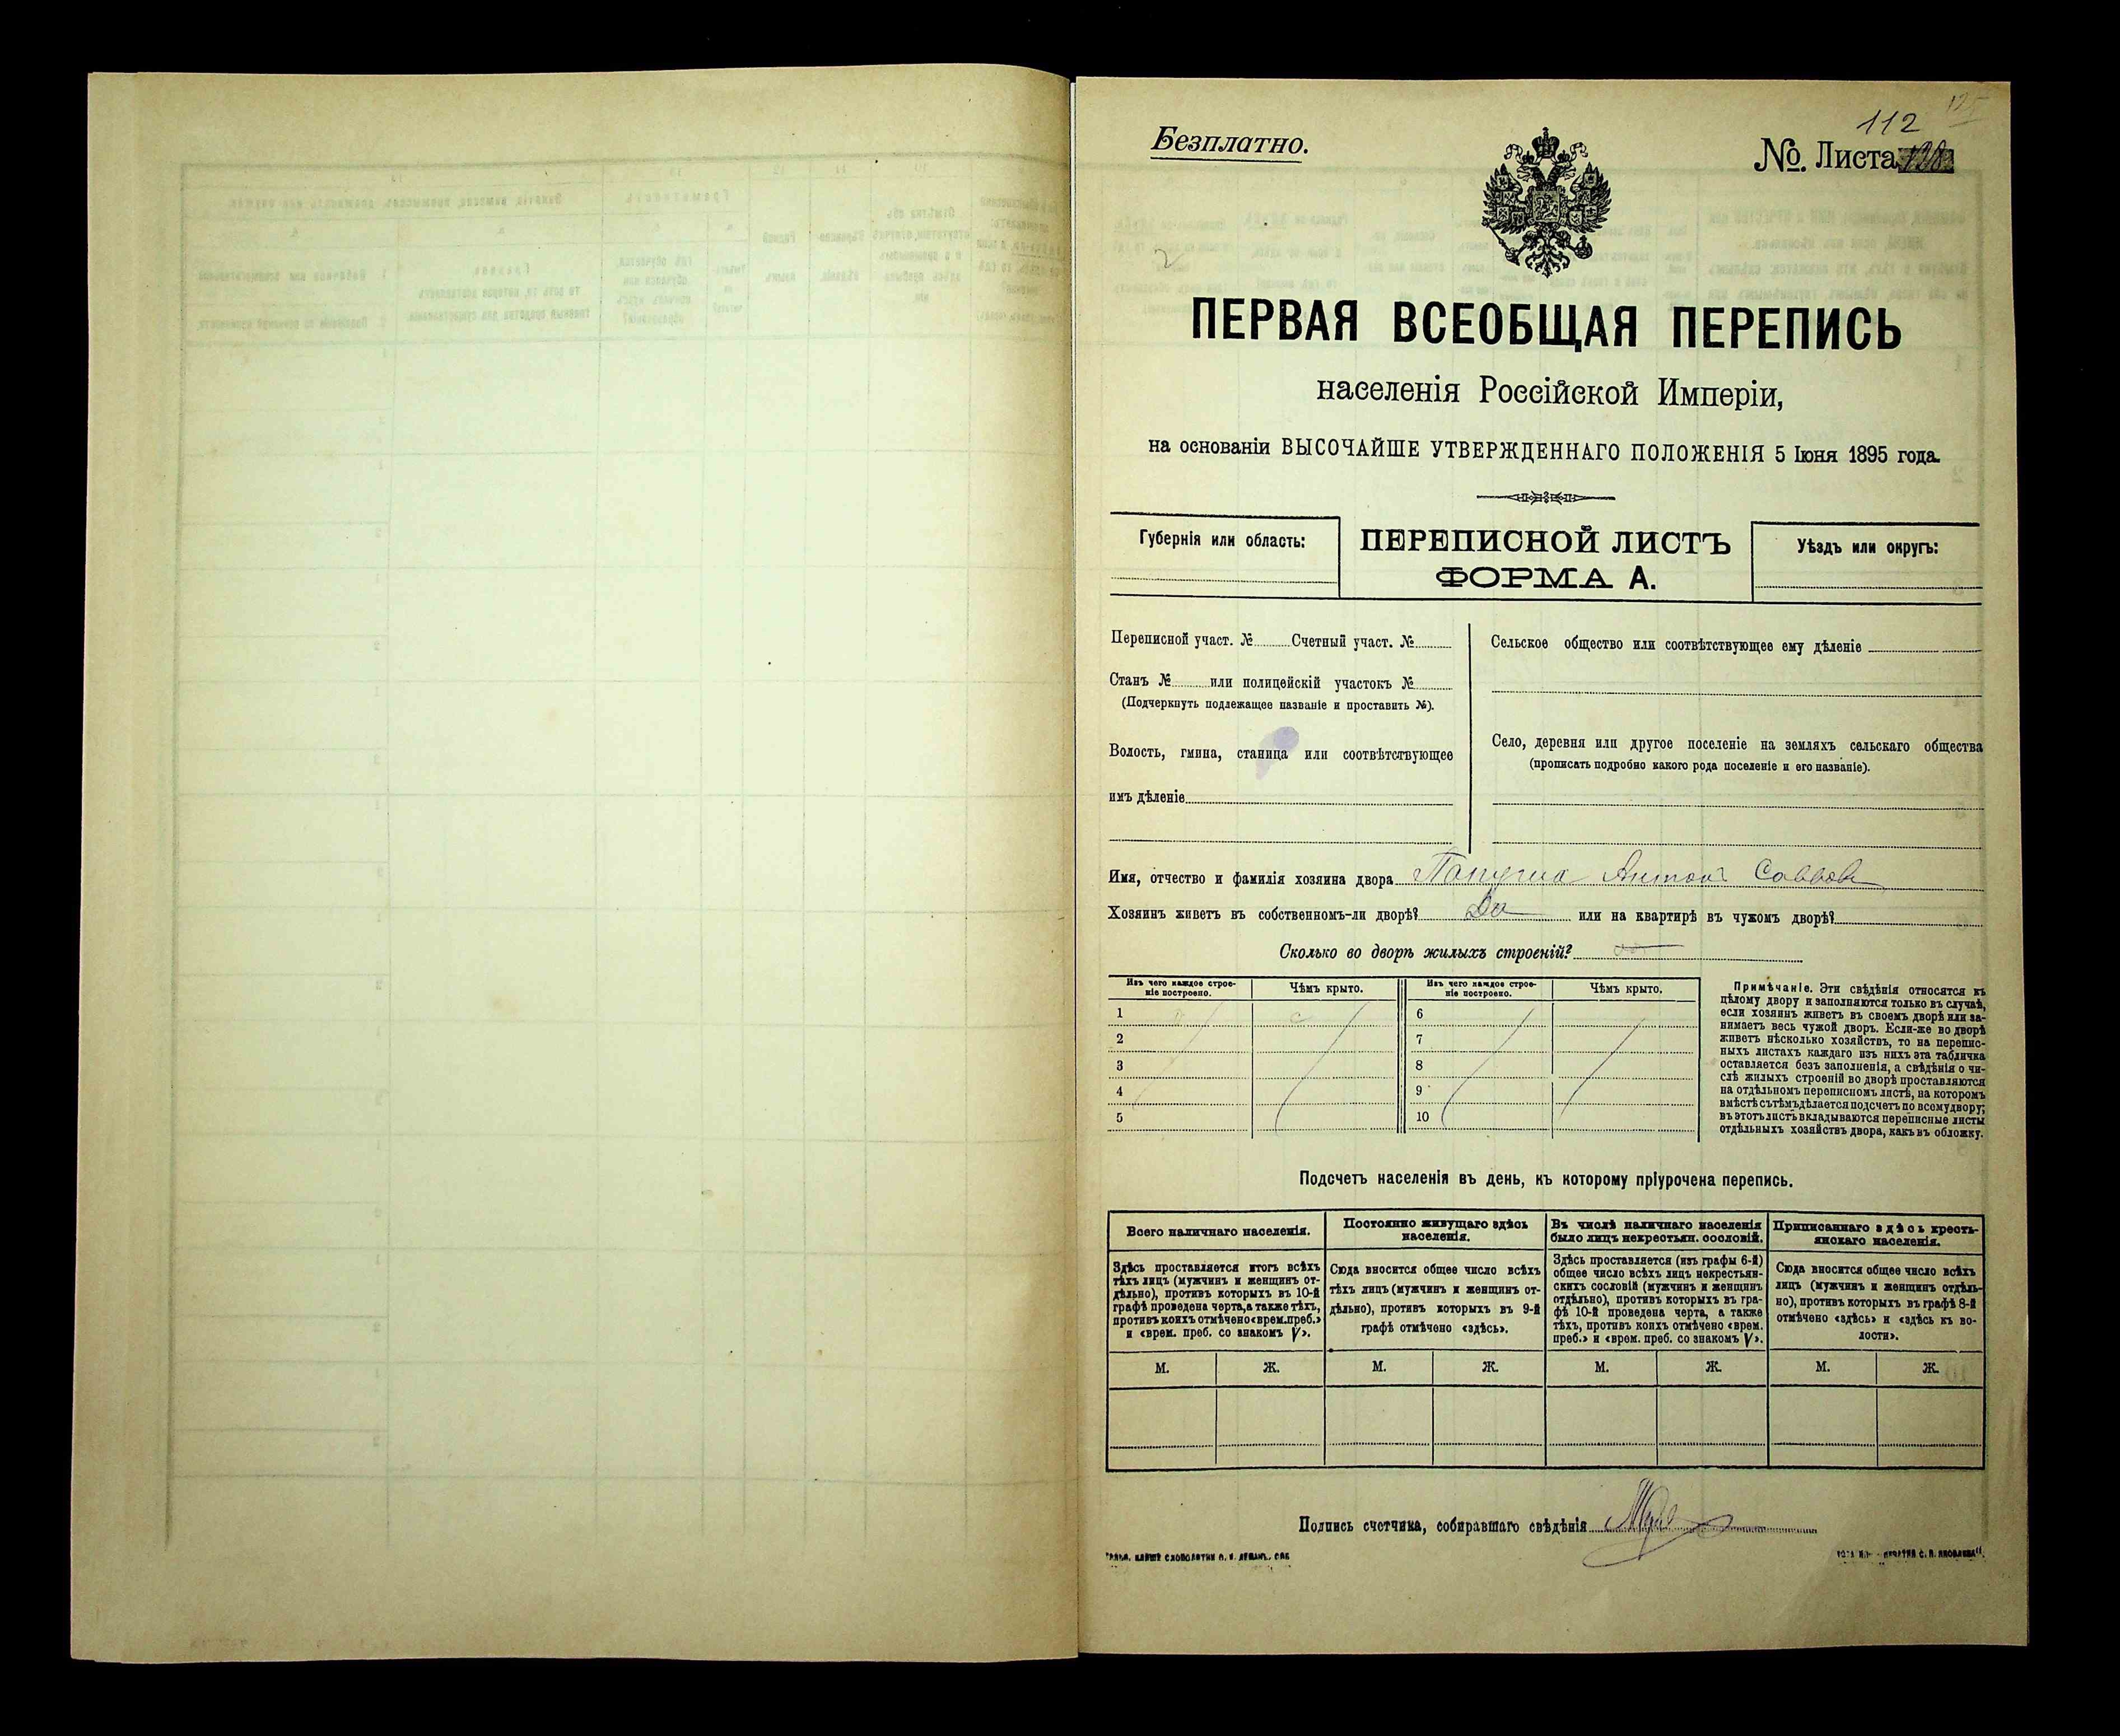 Безплатно.
112
№. Листа
2
ПЕРВАЯ ВСЕОБЩАЯ ПЕРЕПИСЬ
населенія Россійской Имперіи,
на основаніи ВЫСОЧАЙШЕ УТВЕРЖДЕННАГО ПОЛОЖЕНІЯ 5 Іюня 1895 года.
Губернія или область:
ПЕРЕПИСНОЙ ЛИСТЪ
ФОРМА А.
Уѣздъ или округъ:
Переписной участ. № Счетный участ. №
Станъ № или полицейскій участокъ №
(Подчеркнуть подлежащее названіе и проставить №).
Волость, гмина, станица или соотвѣтствующее
имъ дѣленіе
Сельское общество или соотвѣтствующее ему дѣленіе
Село, деревня или другое поселеніе на земляхъ сельскаго общества
(прописать подробно какого рода поселеніе и его названіе).
Имя, отчество и фамилія хозяина двора Антонъ Саввовъ
Хозяинъ живетъ въ собственномъ-ли дворѣ? Да или на квартирѣ въ чужомъ дворѣ?
Сколько во дворѣ жилыхъ строеній?
Изъ чего каждое строе-
ніе построено.
Чѣмъ крыто.
Изъ чего каждое строе-
ніе построено.
Чѣмъ крыто.
1 с 6
2 7
3 8
4 9
5 10
Примѣчаніе. Эти свѣдѣнія относятся къ
цѣлому двору и заполняются только въ случаѣ,
если хозяинъ живетъ въ своемъ дворѣ или за-
нимаетъ весь чужой дворъ. Если-же во дворѣ
живетъ нѣсколько хозяйствъ, то на перепис-
ныхъ листахъ каждаго изъ нихъ эта табличка
оставляется безъ заполненія, а свѣдѣнія о чи-
слѣ жилыхъ строеній во дворѣ проставляются
на отдѣльномъ переписномъ листѣ, на которомъ
вмѣстѣ съ тѣмъ дѣлается подсчетъ по всему двору;
въ этотъ листъ вкладываются переписные листы
отдѣльныхъ хозяйствъ двора, какъ въ обложку.
Подсчетъ населенія въ день, къ которому пріурочена перепись.
Всего наличнаго населенія.
Здѣсь проставляется итогъ всѣхъ
тѣхъ лицъ (мужчинъ и женщинъ от-
дѣльно), противъ которыхъ въ 10-й
графѣ проведена черта, а также тѣхъ,
противъ коихъ отмѣчено «врем. преб.»
и «врем. преб. со знакомъ V».
Постоянно живущаго здѣсь
населенія.
Сюда вносится общее число всѣхъ
тѣхъ лицъ (мужчинъ и женщинъ от-
дѣльно), противъ которыхъ въ 9-й
графѣ отмѣчено «здѣсь».
Въ числѣ наличнаго населенія
было лицъ некрестьян. сословій.
Здѣсь проставляется (изъ графы 6-й)
общее число всѣхъ лицъ некрестьян-
скихъ сословій (мужчинъ и женщинъ
отдѣльно), противъ которыхъ въ гра-
фѣ 10-й проведена черта, а также
тѣхъ, противъ коихъ отмѣчено «врем.
преб.» и «врем. преб. со знакомъ V».
Приписаннаго здѣсь кресть-
янскаго населенія.
Сюда вносится общее число всѣхъ
лицъ (мужчинъ и женщинъ отдѣль-
но), противъ которыхъ въ графѣ 8-й
отмѣчено «здѣсь» и «здѣсь къ во-
лости».
М. Ж. М. Ж. М. Ж. М. Ж.
Подпись счетчика, собиравшаго свѣдѣнія